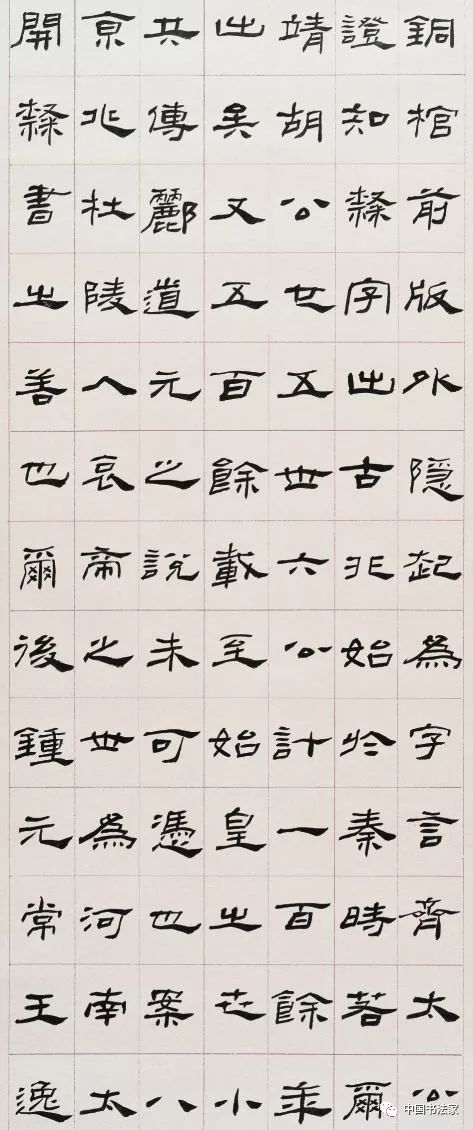 銅棺前版外隱起為字言齊太公
證知隸字出古非始於秦時若爾
靖胡公也五世六公計一百餘年
出矣又五百餘載至始皇之世小
共傳酈道元之說未可憑也案八
京兆杜陵人哀帝之世為河南太
開隸書之善也爾後鍾元常王逸
中国书法家